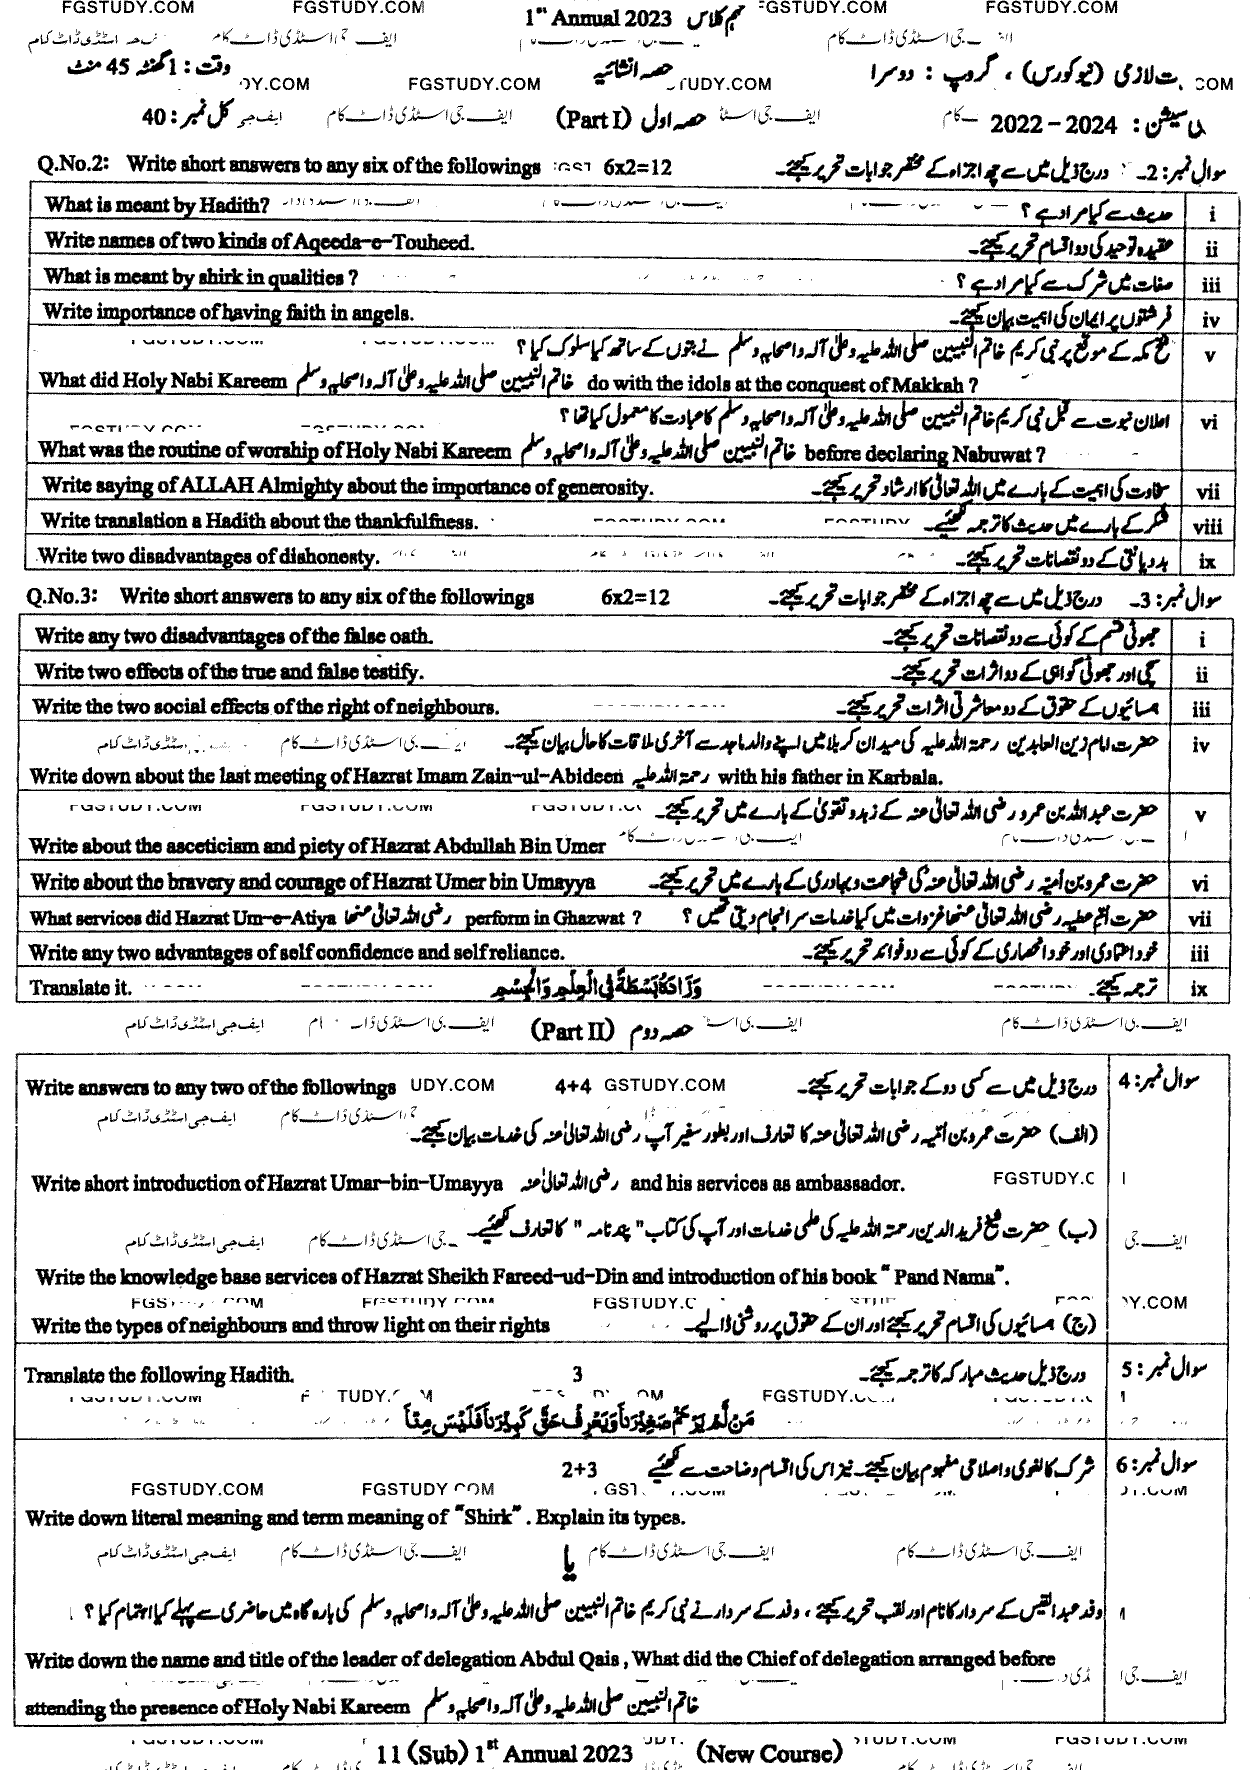 1st Annual 2023 نہم کلاس
ت لازمی (نیو کورس) ، گروپ : دوسرا حصہ انشائیہ وقت : 1 گھنٹہ 45 منٹ
سیشن : 2022 – 2024 حصہ اول (Part I) کل نمبر : 40
Q.No.2: Write short answers to any six of the followings 6x2=12 سوال نمبر :2۔ درج ذیل میں سے چھ اجزاء کے مختصر جوابات تحریر کیجئے۔
What is meant by Hadith? حدیث سے کیا مراد ہے ؟ i
Write names of two kinds of Aqeeda-e-Touheed. عقیدہ توحید کی دو اقسام تحریر کیجئے۔ ii
What is meant by shirk in qualities ? صفات میں شرک سے کیا مراد ہے ؟ iii
Write importance of having faith in angels. فرشتوں پر ایمان کی اہمیت بیان کیجئے۔ iv
فتح مکہ کے موقع پر نبی کریم خاتم النبیین صلی اللہ علیہ وعلیٰ آلہ واصحابہ وسلم نے بتوں کے ساتھ کیا سلوک کیا ؟ v
What did Holy Nabi Kareem خاتم النبیین صلی اللہ علیہ وعلیٰ آلہ واصحابہ وسلم do with the idols at the conquest of Makkah ?
اعلان نبوت سے قبل نبی کریم خاتم النبیین صلی اللہ علیہ وعلیٰ آلہ واصحابہ وسلم کا عبادت کا معمول کیا تھا ؟ vi
What was the routine of worship of Holy Nabi Kareem خاتم النبیین صلی اللہ علیہ وعلیٰ آلہ واصحابہ وسلم before declaring Nabuwat ?
Write saying of ALLAH Almighty about the importance of generosity. سخاوت کی اہمیت کے بارے میں اللہ تعالیٰ کا ارشاد تحریر کیجئے۔ vii
Write translation a Hadith about the thankfulness. شکر کے بارے میں حدیث کا ترجمہ لکھئیے۔ viii
Write two disadvantages of dishonesty. بددیانتی کے دو نقصانات تحریر کیجئے۔ ix
Q.No.3: Write short answers to any six of the followings 6x2=12 سوال نمبر :3۔ درج ذیل میں سے چھ اجزاء کے مختصر جوابات تحریر کیجئے۔
Write any two disadvantages of the false oath. جھوٹی قسم کے کوئی سے دو نقصانات تحریر کیجئے۔ i
Write two effects of the true and false testify. سچی اور جھوٹی گواہی کے دو اثرات تحریر کیجئے۔ ii
Write the two social effects of the right of neighbours. ہمسائیوں کے حقوق کے دو معاشرتی اثرات تحریر کیجئے۔ iii
حضرت امام زین العابدین رحمۃ اللہ علیہ کی میدان کربلا میں اپنے والد ماجد سے آخری ملاقات کا حال بیان کیجئے۔ iv
Write down about the last meeting of Hazrat Imam Zain-ul-Abideen رحمۃ اللہ علیہ with his father in Karbala.
حضرت عبداللہ بن عمرو رضی اللہ تعالیٰ عنہ کے زہد و تقویٰ کے بارے میں تحریر کیجئے۔ v
Write about the asceticism and piety of Hazrat Abdullah Bin Umer
Write about the bravery and courage of Hazrat Umer bin Umayya حضرت عمرو بن اُمیّہ رضی اللہ تعالیٰ عنہ کی شجاعت و بہادری کے بارے میں تحریر کیجئے۔ vi
What services did Hazrat Um-e-Atiya رضی اللہ تعالیٰ عنھا perform in Ghazwat ? حضرت اُمّ عطیہ رضی اللہ تعالیٰ عنھا غزوات میں کیا خدمات سرانجام دیتی تھیں ؟ vii
Write any two advantages of self confidence and selfreliance. خود اعتمادی اور خود انحصاری کے کوئی سے دو فوائد تحریر کیجئے۔ iii
Translate it. وَزَادَهُ بَسْطَةً فِي الْعِلْمِ وَالْجِسْمِ ترجمہ کیجئے۔ ix
حصہ دوم (Part II)
Write answers to any two of the followings 4+4 درج ذیل میں سے کسی دو کے جوابات تحریر کیجئے۔ سوال نمبر : 4
(الف) حضرت عمرو بن اُمیّہ رضی اللہ تعالیٰ عنہ کا تعارف اور بطور سفیر آپ رضی اللہ تعالیٰ عنہ کی خدمات بیان کیجئے۔
Write short introduction of Hazrat Umar-bin-Umayya رضی اللہ تعالیٰ عنہ and his services as ambassador.
(ب) حضرت شیخ فرید الدین رحمۃ اللہ علیہ کی علمی خدمات اور آپ کی کتاب " پند نامہ " کا تعارف لکھئیے۔
Write the knowledge base services of Hazrat Sheikh Fareed-ud-Din and introduction of his book " Pand Nama".
Write the types of neighbours and throw light on their rights (ج) ہمسائیوں کی اقسام تحریر کیجئے اور ان کے حقوق پر روشنی ڈالیے۔
Translate the following Hadith. 3 درج ذیل حدیث مبارکہ کا ترجمہ کیجئے۔ سوال نمبر : 5
مَنْ لَّمْ يَرْحَمْ صَغِيْرَنَا وَيَعْرِفْ حَقَّ كَبِيْرِنَا فَلَيْسَ مِنَّا
2+3 شرک کا لغوی و اصلاحی مفہوم بیان کیجئے۔ نیز اس کی اقسام وضاحت سے لکھئیے سوال نمبر : 6
Write down literal meaning and term meaning of "Shirk" . Explain its types.
یا
وفد عبدالقیس کے سردار کا نام اور لقب تحریر کیجئے ، وفد کے سردار نے نبی کریم خاتم النبیین صلی اللہ علیہ وعلیٰ آلہ واصحابہ وسلم کی بارگاہ میں حاضری سے پہلے کیا اہتمام کیا ؟
Write down the name and title of the leader of delegation Abdul Qais , What did the Chief of delegation arranged before
attending the presence of Holy Nabi Kareem خاتم النبیین صلی اللہ علیہ وعلیٰ آلہ واصحابہ وسلم
11 (Sub) 1st Annual 2023 (New Course)